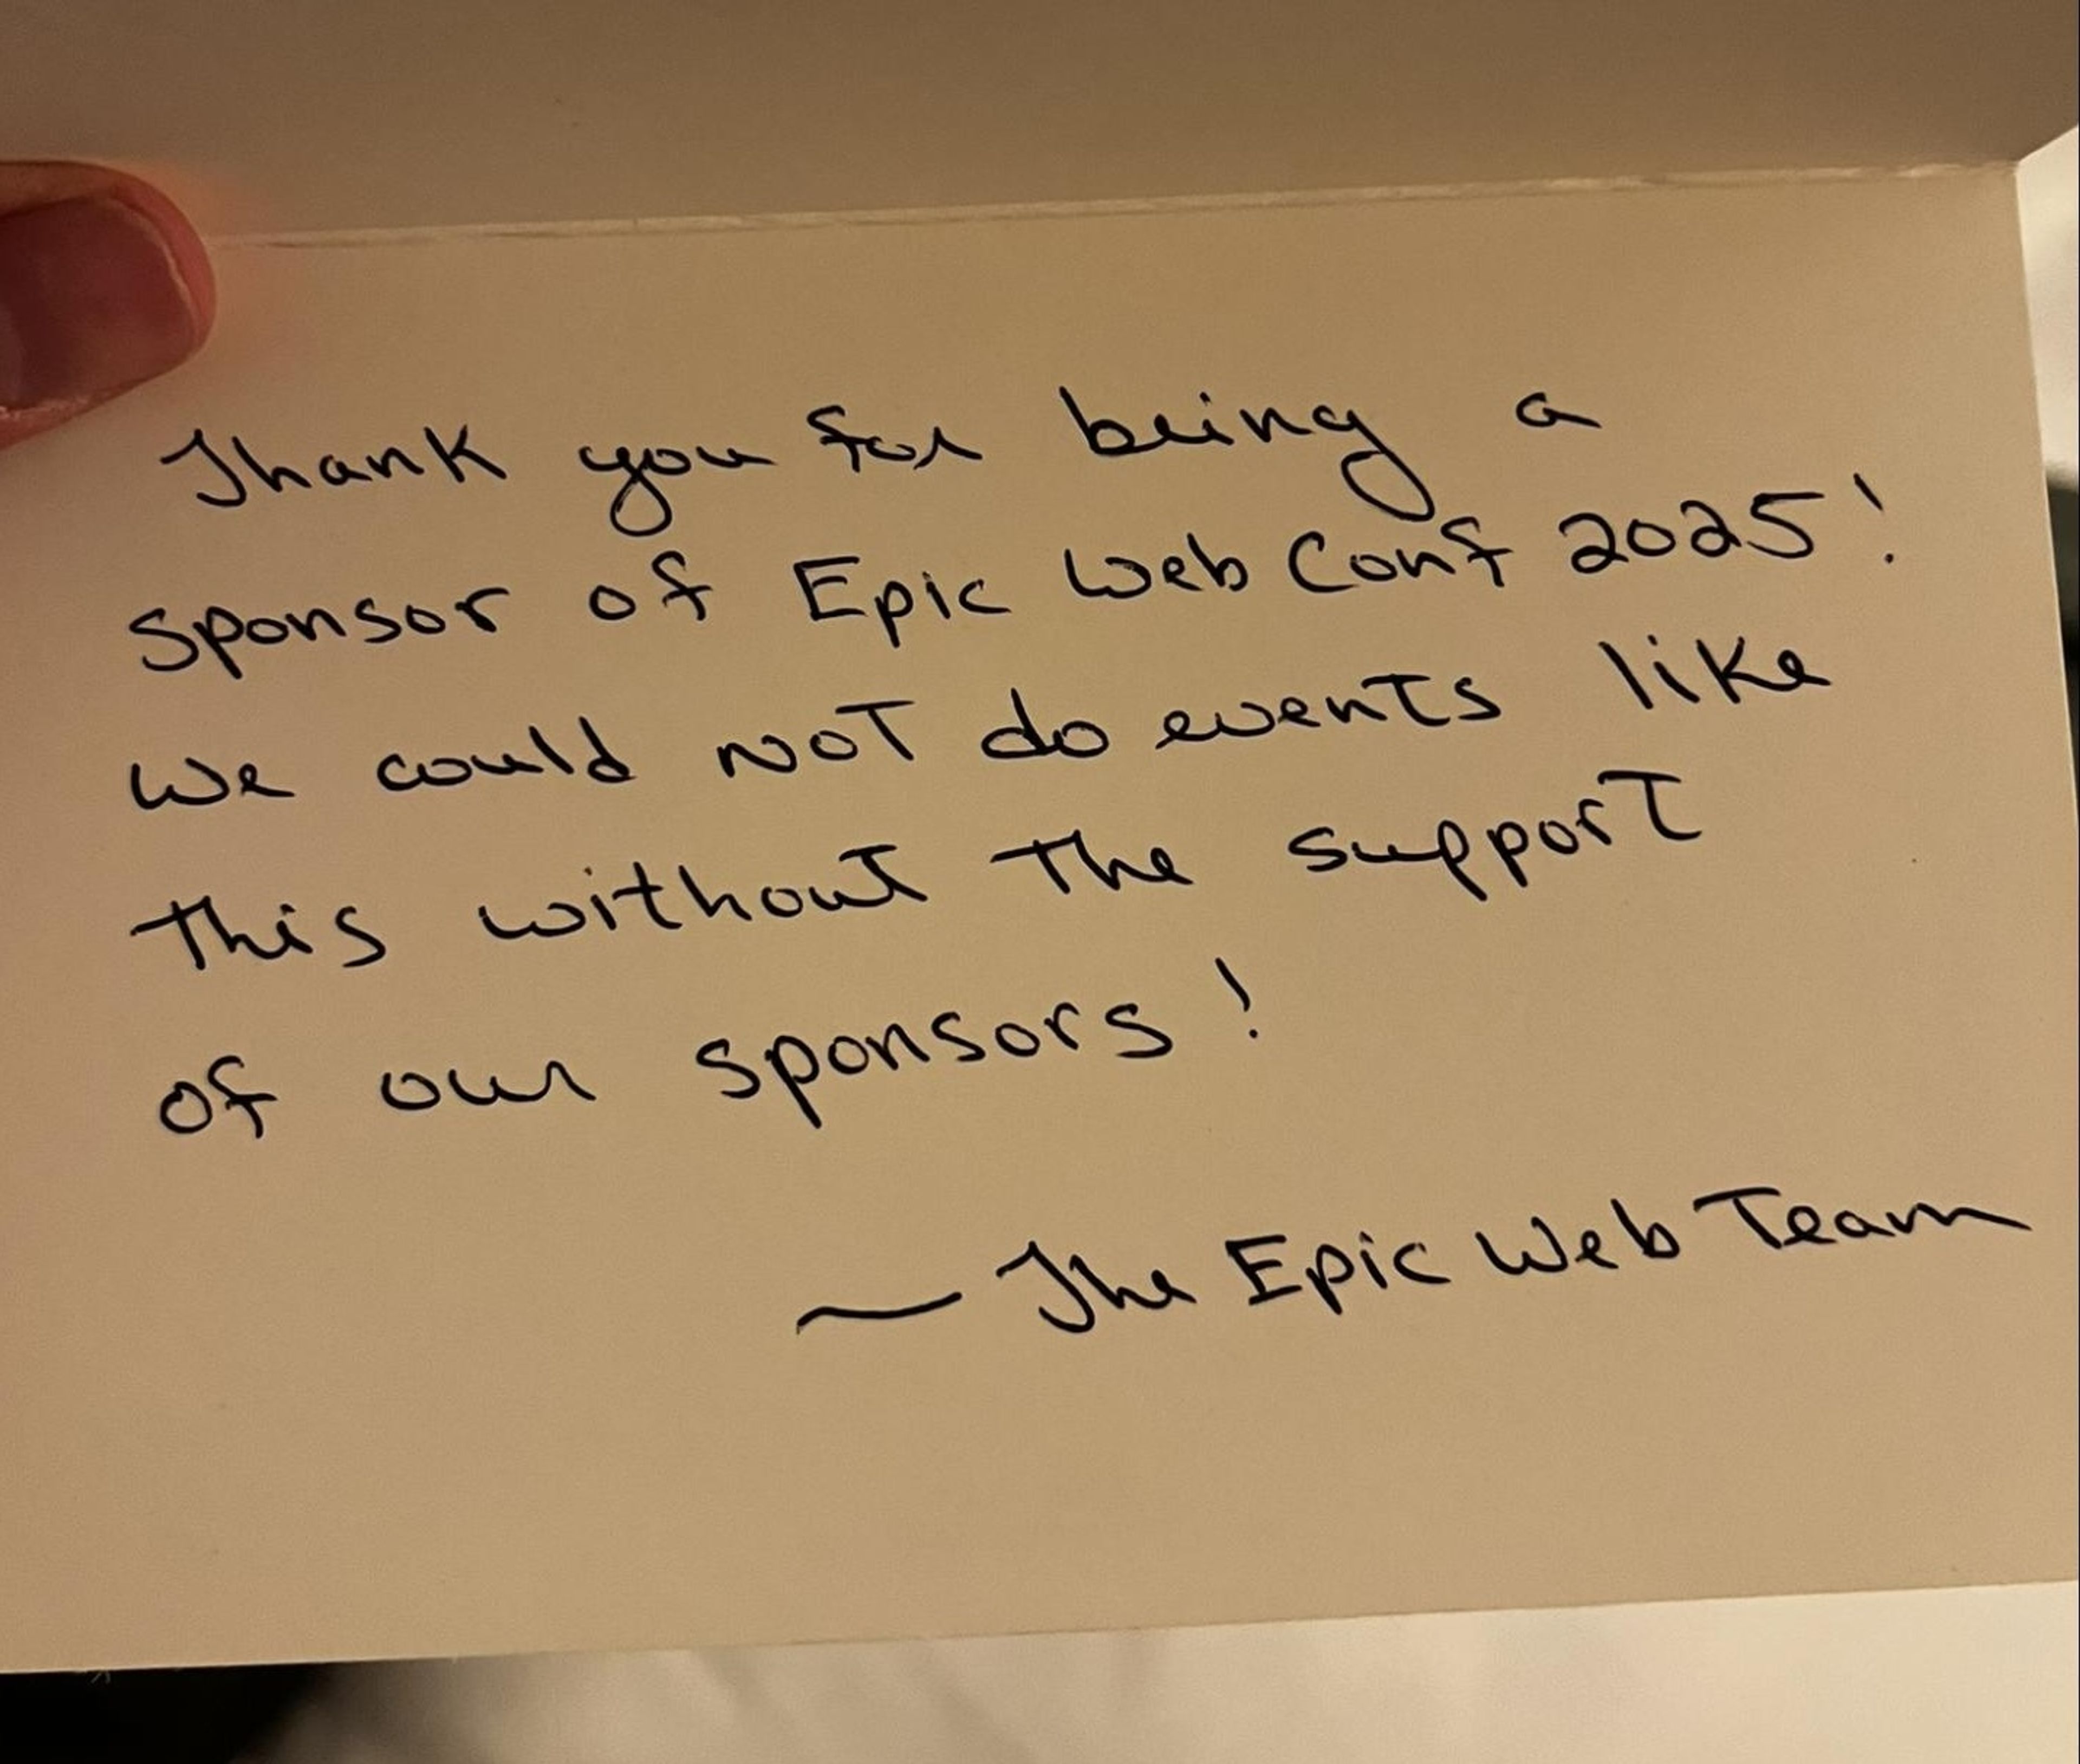 Thank you for being a
sponsor of Epic Web Conf 2025!
We could not do events like
this without the support
of our sponsors!
~ The Epic Web Team